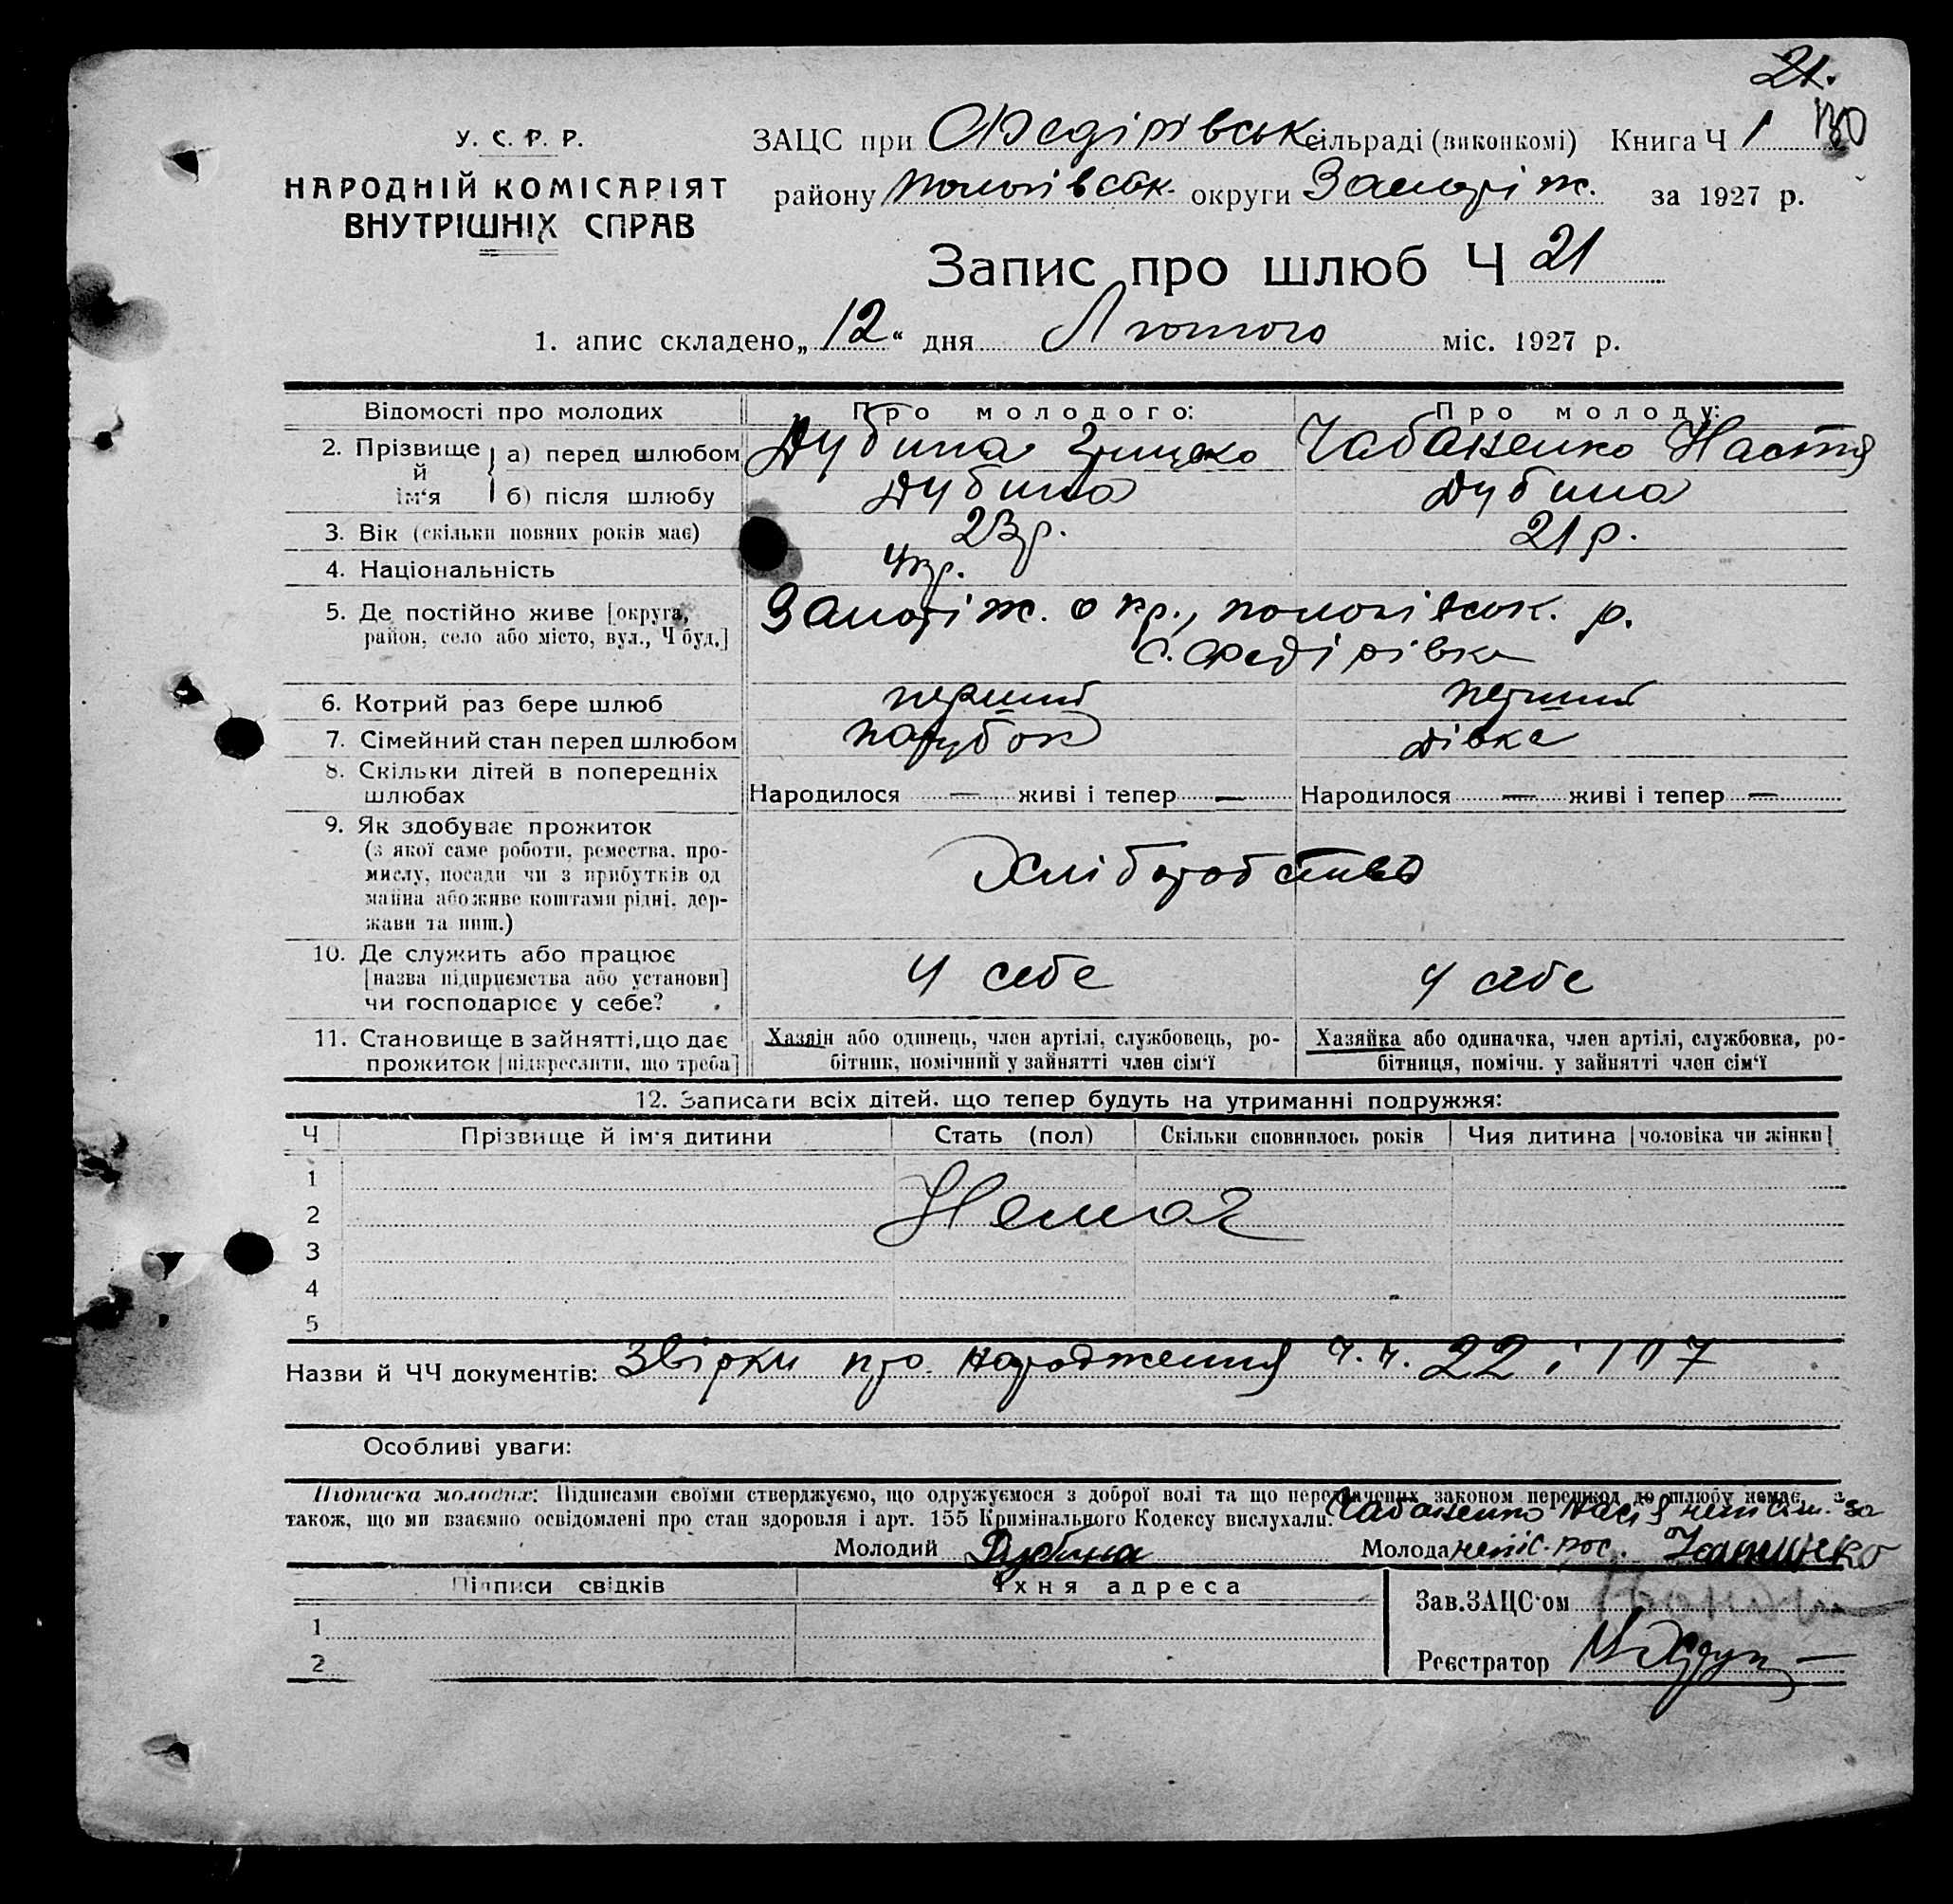 21.
У. С. Р. Р.
НАРОДНІЙ КОМІСАРІЯТ
ВНУТРІШНІХ СПРАВ
ЗАЦС при Федірівськ сільраді (виконкомі) Книга Ч 1 130
району Пологівськ. округи Запоріж. за 1927 р.
Запис про шлюб Ч 21
1. апис складено „12“ дня Лютого міс. 1927 р.
Відомості про молодих Про молодого: Про молоду:
2. Прізвище й ім‘я а) перед шлюбом Дубина Грицько Чабаненко Настя
б) після шлюбу Дубина Дубина
3. Вік (скільки повних років має) 23р. 21р.
4. Національність Укр.
5. Де постійно живе [округа, Запоріж. окр., пологівськ. р.
район, село або місто, вул., Ч буд.] с. Федірівка
6. Котрий раз бере шлюб перший перший
7. Сімейний стан перед шлюбом парубок дівка
8. Скільки дітей в попередніх
шлюбах Народилося — живі і тепер — Народилося — живі і тепер —
9. Як здобуває прожиток
(з якої саме роботи, ремества, про-
мислу, посади чи з прибутків од Хліборобство
майна або живе коштами рідні, дер-
жави та инш.)
10. Де служить або працює
[назва підприємства або установи] У себе У себе
чи господарює у себе?
11. Становище в зайнятті, що дає Хазяін або одинець, член артілі, службовець, ро- Хазяйка або одиначка, член артілі, службовка, ро-
прожиток [підкреслити, що треба] бітник, помічний у зайнятті член сім‘ї бітниця, помічн. у зайнятті член сім‘ї
12. Записати всіх дітей, що тепер будуть на утриманні подружжя:
Ч Прізвище й ім‘я дитини Стать (пол) Скільки сповнилось років Чия дитина [чоловіка чи жінки]
1
2 Немає
3
4
5
Назви й ЧЧ документів: Звірки про народження ч.ч. 22 і 107
Особливі уваги:
Підписка молодих: Підписами своїми стверджуємо, що одружуємося з доброї волі та що передбачених законом перешкод до шлюбу немає, а
також, що ми взаємно освідомлені про стан здоровля і арт. 155 Кримінального Кодексу вислухали. Чабаненко за
Молодий Дубина Молода неписۥ
Підписи свідків Їхня адреса
Зав.ЗАЦС‘ом
1
2 Реєстратор